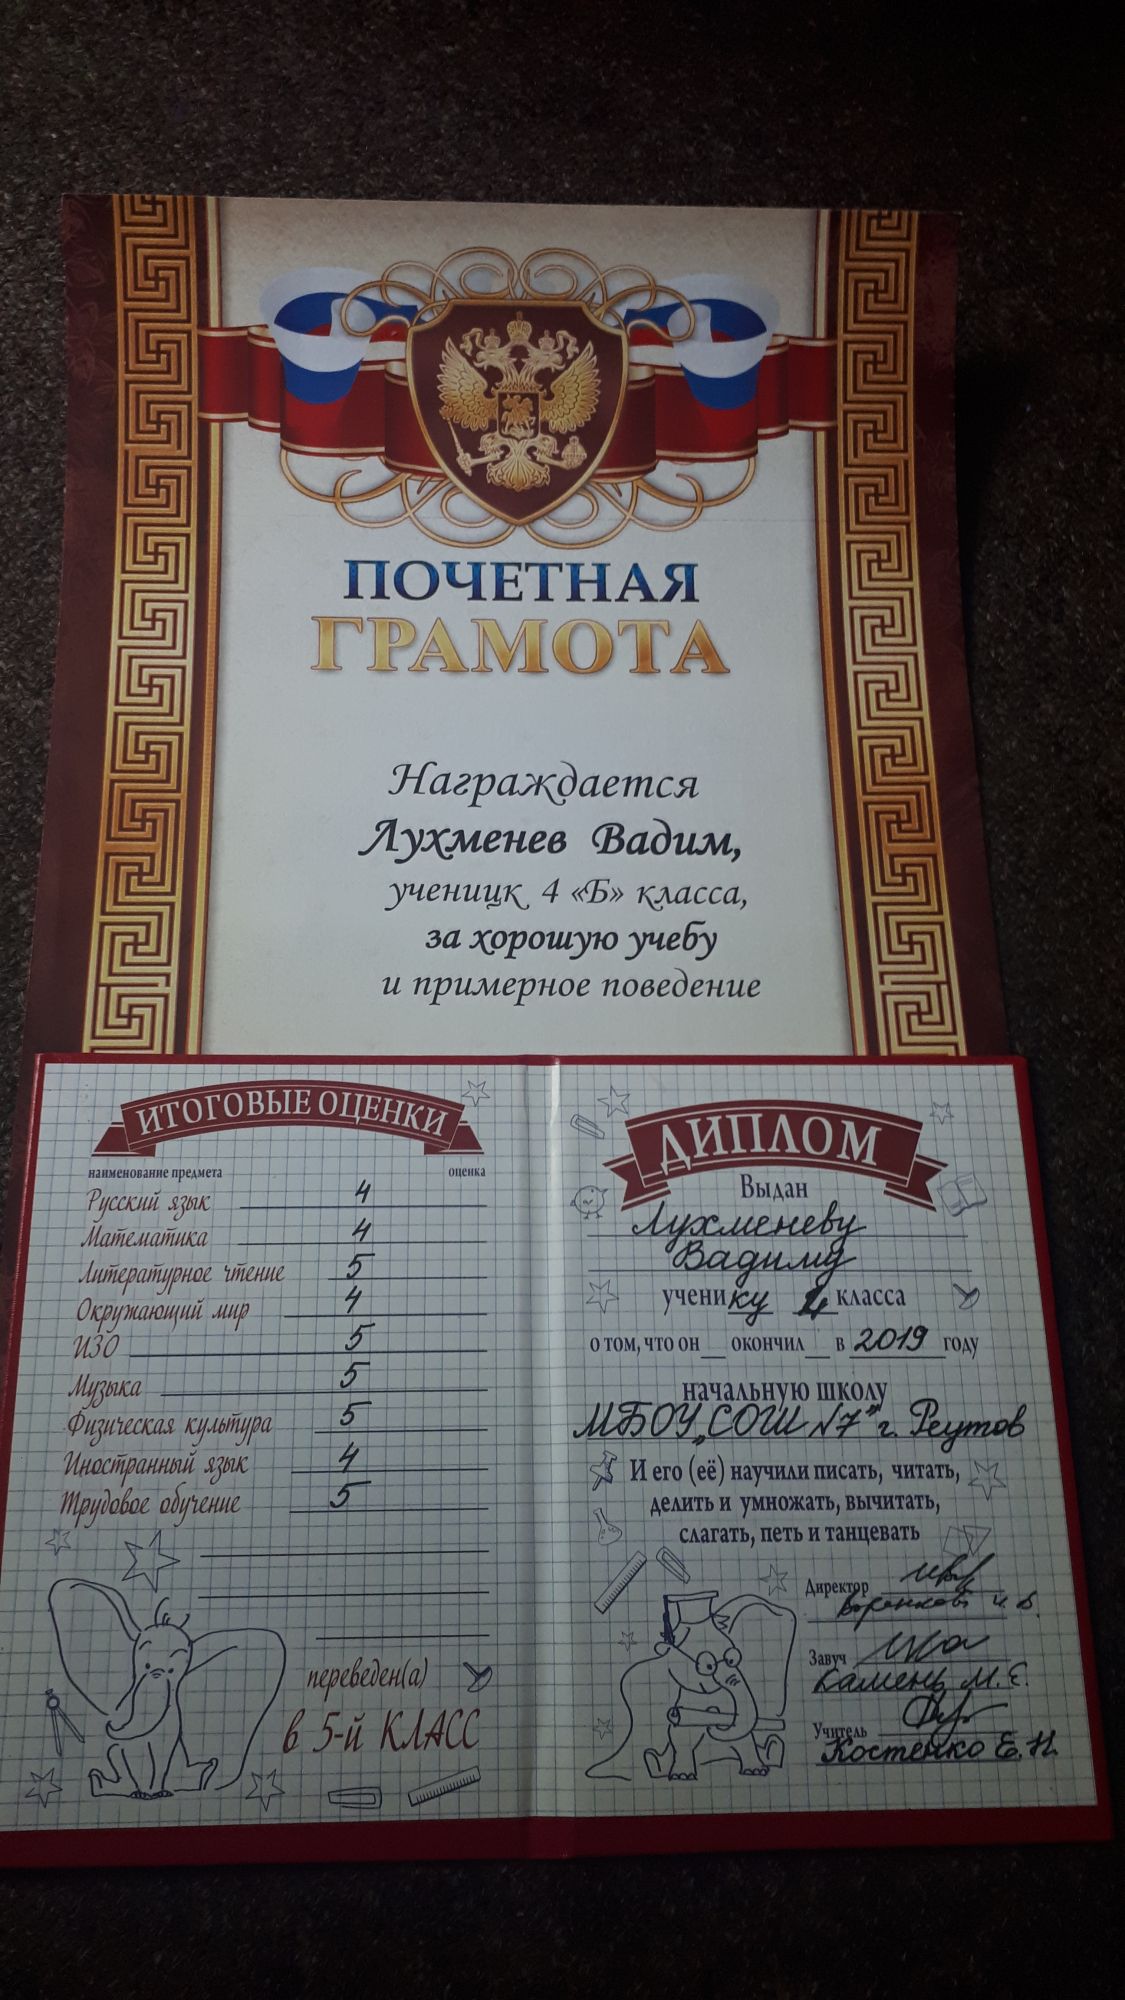 ПОЧЕТНАЯ
ГРАМОТА
Награждается
Лухменев Вадим,
ученицк 4 «Б» класса,
за хорошую учебу
и примерное поведение
ИТОГОВЫЕ ОЦЕНКИ
наименование предмета оценка
Русский язык 4
Математика 4
Литературное чтение 5
Окружающий мир 4
ИЗО 5
Музыка 5
Физическая культура 5
Иностранный язык 4
Трудовое обучение 5
переведен(а)
в 5-й КЛАСС
ДИПЛОМ
Выдан
Лухменеву
Вадиму
ученику 4 класса
о том, что он окончил в 2019 году
начальную школу
МБОУ „СОШ №7" г. Реутов
И его (её) научили писать, читать,
делить и умножать, вычитать,
слагать, петь и танцевать
Директор
Завуч
Камень М.Е.
Учитель
Костенко Е.Н.